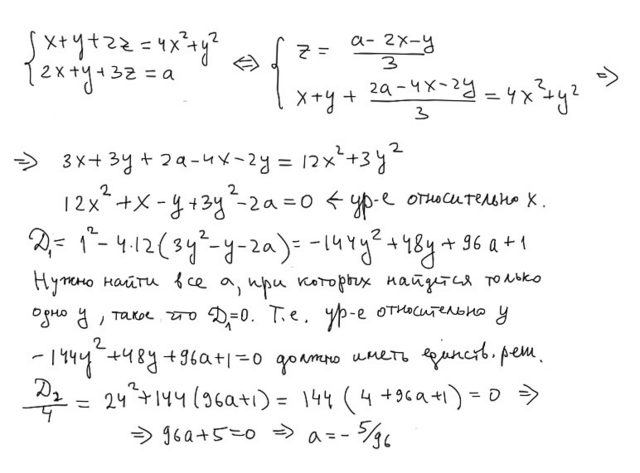 { x+y+2z=4x²+y² ⇔ { z= (a-2x-y)/3
{ 2x+y+3z=a { x+y+ (2a-4x-2y)/3 =4x²+y² ⇒
⇒ 3x+3y+2a-4x-2y=12x²+3y²
12x²+x-y+3y²-2a=0 ← ур-е относительно x.
D₁=1²-4·12(3y²-y-2a)=-144y²+48y+96a+1
Нужно найти все a, при которых найдется только
одно y, такое что D₁=0. Т.е. ур-е относительно y
-144y²+48y+96a+1=0 должно иметь единств. реш.
D₂/4 = 24²+144(96a+1)= 144(4+96a+1)=0 ⇒
⇒ 96a+5=0 ⇒ a=-5/96